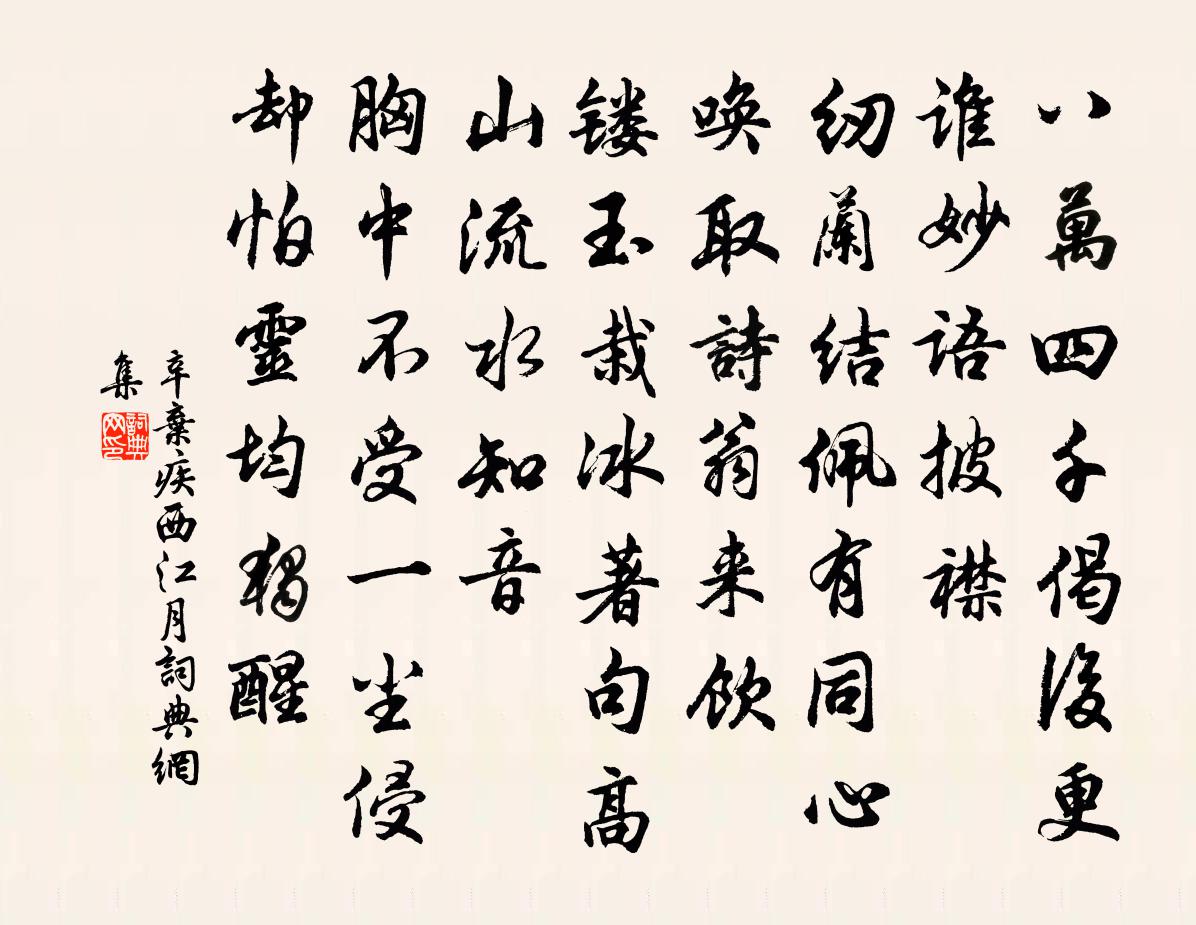 八萬四千偈後更
誰妙語披襟
纫蘭结佩有同心
唤取詩翁来飲
镂玉裁冰著句高
山流水知音
胸中不受一尘侵
却怕靈均獨醒
辛棄疾西江月詞典網
集
詞典網印